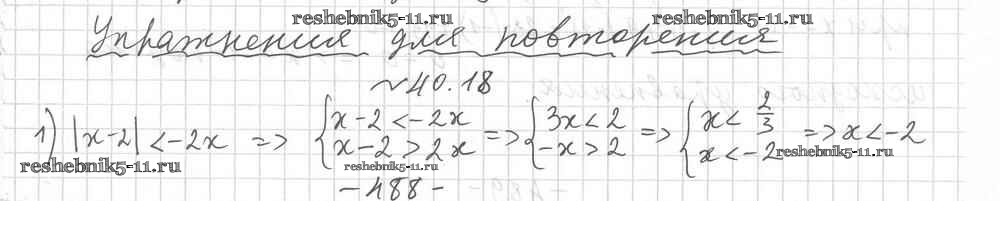 reshebnik5-11.ru reshebnik5-11.ru
Упражнения для повторения
~40.18
1) |x-2| < -2x => { x-2 < -2x => { 3x < 2 => { x < 2/3 => x < -2
x-2 > 2x -x > 2 x < -2
reshebnik5-11.ru reshebnik5-11.ru reshebnik5-11.ru
-488-